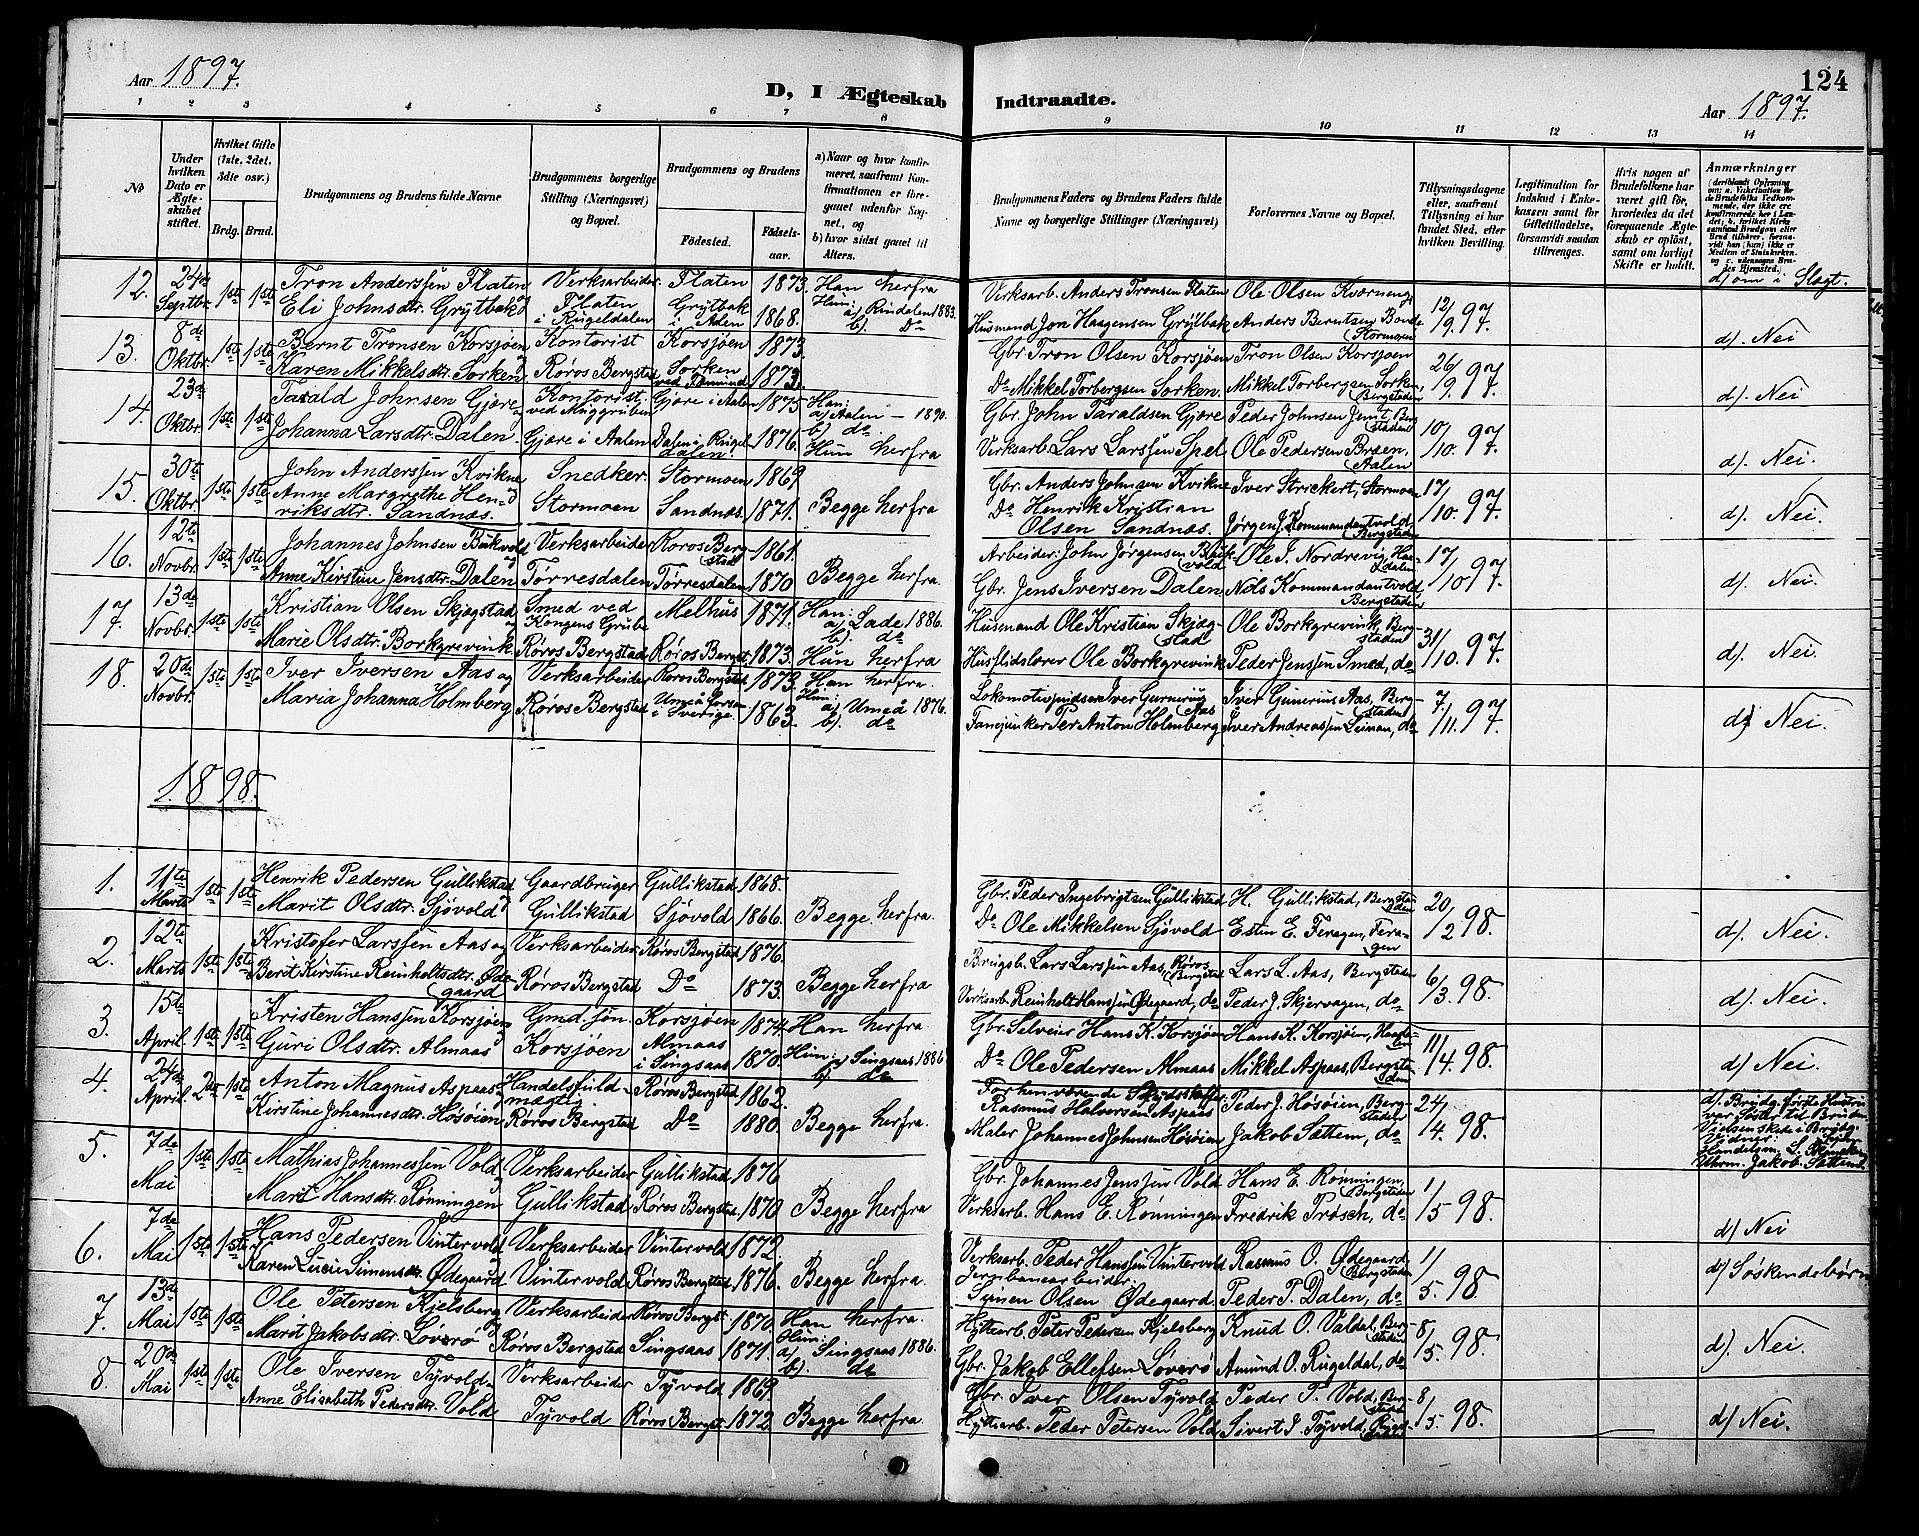 Aar 1897.
D, I Ægteskab Indtraadte.
124
Aar 1897.
1 2 3 4 5 6 7 8 9 10 11 12 13 14
No
Under hvilken Dato er Ægteskabet stiftet.
Hvilket Gifte (1ste, 2det, 3die osv.)
Brdg. Brud.
Brudgommens og Brudens fulde Navne
Brudgommens borgerlige Stilling (Næringsvei) og Bopæl.
Brudgommens og Brudens
Fødested.
Fødselsaar.
a) Naar og hvor konfirmeret, saafremt Konfirmationen er foregaaet udenfor Sognet, og
b) hvor sidst gaaet til Alters.
Brudgommens Faders og Brudens Faders fulde Navne og borgerlige Stillinger (Næringsvei)
Forlovernes Navne og Bopæl.
Tillysningsdagene eller, saafremt Tillysning ei har fundet Sted, efter hvilken Bevilling.
Legitimation for Indskud i Enkekassen samt Betaling for Giftetilladelse, forsaavidt saadan tiltrænges.
Hvis nogen af Brudefolkene har været gift før, hvorledes da det foregaaende Ægteskab er opløst, samt om lovligt Skifte er holdt.
Anmærkninger
12. 24de Septbr. 1ste 1ste Tron Anderssen Flaten og Verksarbeider Flaten 1873. Han herfra Verksarb. Anders Tronsen Flaten Ole Olsen Kvernenge 12/9.97. d) om i Slegt.
Eli Johnsdtr. Grytbak Flaten i Rugeldalen Grytbak i Aalen 1868. Hun: a) Rindalen 1883. b) Do Husmand Jon Haagensen Grytbak Anders Berntsen Borde Stormoen
13. 8de Oktbr. 1ste 1ste Bernt Tronsen Korsjøen og Kontorist Korsjøen 1873. Gbr. Tron Olsen Korsjøen Tron Olsen Korsjøen 26/9.97. d). Nei
Karen Mikkelsdtr. Sorken Røros Bergstad Sorken ved Fæmund 1873. Do Mikkel Torbergsen Sorken. Mikkel Torbergsen Sorken, Bergstaden
14. 23de Oktbr. 1ste 1ste Tarald Johnsen Gjøre Kontorist ved Muggruben Gjøre i Aalen 1875 Han: a) Aalen – 1890. b) do. Gbr. John Taraldsen Gjøre Peder Johnsen Jemt, Bergstaden 10/10.97. d). Nei
Johanna Larsdtr. Dalen Gjøre i Aalen Dalen i Rugeldalen 1876. Hun herfra Verksarb. Lars Larssen Spel Ole Pedersen Bræen, Aalen
15. 30te Oktbr. 1ste 1ste John Anderssen Kvikne og Snedker. Stormoen 1869 Gbr. Anders Johnsen Kvikne Iver Strickert, Stormoen 17/10.97. d). Nei.
Anne Margrethe Henriksdtr. Sandnæs. Stormoen Sandnæs. 1871. Begge herfra Do Henrik Kristian Olsen Sandnæs. Jørgen J. Kommandantvold, Bergstaden
16. 12te Novbr. 1ste 1ste Johannes Johnsen Bukvold og Verksarbeider Røros Bergstad 1861. Arbeider: John Jørgensen Bukvold Ole I. Nordrevig, 17/10 97. d). Nei.
Anne Kirstine Jensdtr. Dalen Torresdalen Torresdalen 1870 Begge herfra. Gbr. Jens Iversen Dalen Nols Kommandantvold Bergstaden
17. 13de Novbr. 1ste 1ste Kristian Olsen Skjøgstad og Smed ved Kongens Grube Melhus 1871. Han: a) Lade 1886. b). do Husmand Ole Kristian Skjøgstad Ole Borkgrevink, Bergstaden 31/10.97. d). Nei.
Marie Olsdtr. Borkgrevink Røros Bergstad Røros Bergst. 1873. Hun herfra Husflidslærer Ole Borkgrevink Peder Jenssen Smed, do
18. 20de Novbr. 1ste 1ste Iver Iversen Aas og Verksarbeider Røros Bergstad 1873. Han herfra. Iver Gunerius Aas Iver Gunerius Aas, Bergstaden 7/11.97. d) Nei.
Maria Johanna Holmberg Røros Bergstad i Sverige. 1863. Hun: a) Umeå 1876. b). do Fanejunker Per Anton Holmberg Iver Andreassen Leiman, do
1898.
1. 11te Marts 1ste 1ste Henrik Pedersen Gullikstad og Gaardbruger Gullikstad 1868. Gbr. Peder Ingebrigtsen Gullikstad H. Gullikstad, Bergstaden 20/2 98. d). Nei.
Marit Olsdtr. Sjøvold Gullikstad Sjøvold 1866. Begge herfra. Do Ole Mikkelsen Sjøvold Esten E. Feragen, Feragen
2. 12te Marts 1ste 1ste Kristofer Larssen Aas og Verksarbeider Røros Bergstad 1876. Brugsb. Lars Larssen Aas, Røros Bergstad Lars L. Aas, Bergstaden 6/3.98. d). Nei.
Berit Kirstine Reinholtsdtr. Ødegaard Røros Bergstad Do 1873. Begge herfra Verksarb. Reinholt Hanssen Ødegaard, do Peder J. Skjervagen, do
3. 15de April 1ste 1ste Kristen Hanssen Korsjøen og Gmd. søn Korsjøen 1874. Han herfra Gbr. Selveier Hans K. Korsjøen Hans K. Korsjøen, 11/4.98. d) Nei.
Guri Olsdtr. Almaas Korsjøen Almaas i Singsaas 1870. Hun: a) Singsaas 1886 b) do Do Ole Pedersen Almaas Mikkel Aspaas, Bergstaden
4. 24de April 2det 1ste Anton Magnus Aspaas og Handelsfuldmægtig Røros Bergstad 1862. Forhenværende Skydsskaffer Rasmus Halvorsen Aspaas Peder J. Høsøien, Bergstaden 24/4.98. d). Brudg. første Hustru var Søster til Bruden. Vielsen skede i Brudg. Vidner: Handelsm. L. Uhrm. Jakob Sattem.
Kirstine Johannesdtr. Høsøien Røros Bergstad Do 1880. Begge herfra. Maler Johannes Johnsen Høsøien Jakob Sattem, do
5. 7de Mai 1ste 1ste Mathias Johannessen Vold og Verksarbeider Gullikstad 1876 Gbr. Johannes Jenssen Vold Hans E. Rønningen, Bergstaden 1/5 98. d) Nei
Marit Hansdtr. Rønningen Gullikstad Røros Bergstad. 1870 Begge herfra Verksarb. Hans E. Rønningen Fredrik Prøsch, do
6. 7de Mai 1ste 1ste Hans Pedersen Vintervold og Verksarbeider Vintervold 1872. Verksarb. Peder Hanssen Vintervold Rasmus O. Ødegaard, Bergstaden 1/5.98. d) Søskendebørn
Karen Lucie Simensdtr. Ødegaard Vintervold Røros Bergstad. 1876. Begge herfra. Jernbanearbeider: Simen Olsen Ødegaard. Peder P. Dalen, do
7. 13de Mai 1ste 1ste Ole Petersen Kjelsberg og Verksarbeider Røros Bergst. 1870. Han herfra. Hyttearb. Peter Pedersen Kjelsberg Knud O. Valdal, Bergstaden 8/5.98. d). Nei.
Marit Jakobsdtr. Løverø Røros Bergstad Singsaas 1871. Hun: a) Singsaas 1886. b) do Gbr. Jakob Ellefsen Løverø Amund O. Rugeldal, do
8. 20de Mai 1ste 1ste Ole Iversen Tyvold Verksarbeider Tyvold 1869 Gbr. Iver Olsen Tyvold Peder P. Vold, Bergstad 8/5 98. d) Nei.
Anne Elisabeth Pedersdtr. Vold Tyvold Røros Bergst. 1872. Begge herfra Hyttearb. Peder Petersen Vold Sivert I. Tyvold,